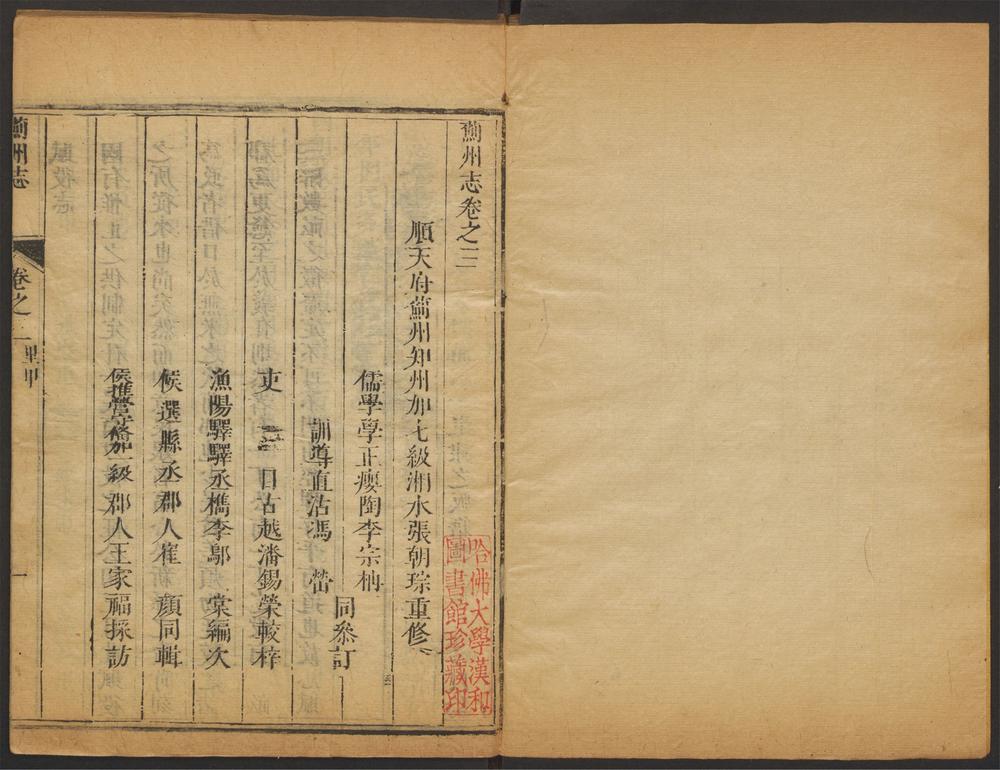 薊州志卷之三
順天府薊州知州加七級湘水張朝琮重修
儒學學正癭陶李宗柟
訓導直沽馮
同叅訂
吏目古越潘錫榮較梓
漁陽驛驛丞檇李鄔棠編次
候選縣丞郡人崔顏同輯
候推營守備加一級郡人王家福採訪
薊州志
卷之
里甲
一
哈佛大學漢和
圖書館珍藏印